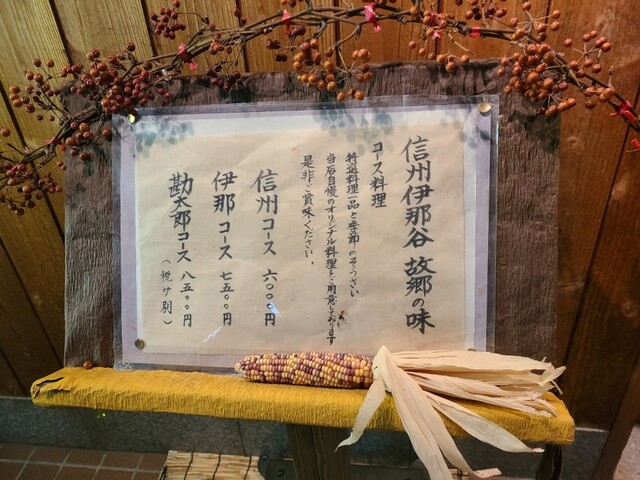 信州伊那谷 故郷の味
コース料理
特選料理一品と季節のそうざい
当店自慢のオリジナル料理をご用意しております
是非ご賞味ください。
信州コース 六〇〇〇円
伊那コース 七五〇〇円
勘太郎コース 八五〇〇円
(税サ別)